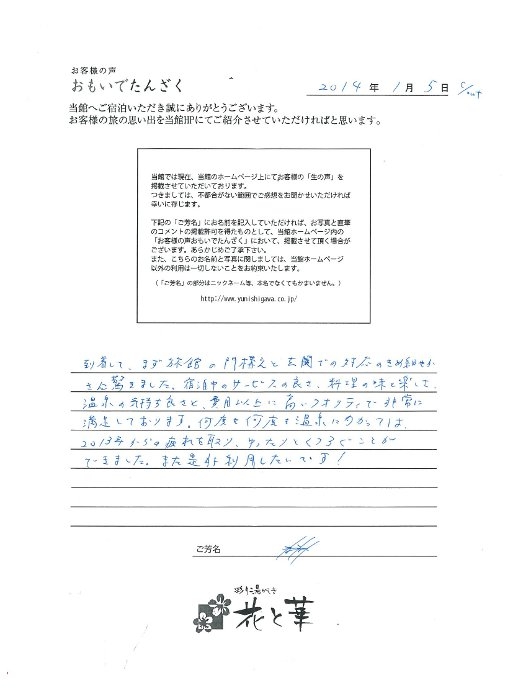 お客様の声
おもいでたんざく
2014年1月5日 c/out
当館へご宿泊いただき誠にありがとうございます。
お客様の旅の思い出を当館HPにてご紹介させていただければと思います。
当館では現在、当館のホームページ上にてお客様の「生の声」を
掲載させていただいております。
つきましては、不都合がない範囲でご感想をお聞かせいただければ
幸いに存じます。
下記の「ご芳名」にお名前を記入していただければ、お写真と直筆
のコメントの掲載許可を得たものとして、当館ホームページ内の
「お客様の声おもいでたんざく」において、掲載させて頂く場合が
ございます。あらかじめご了承下さい。
また、こちらのお名前と写真に関しましては、当館ホームページ
以外の利用は一切しないことをお約束いたします。
（「ご芳名」の部分はニックネーム等、本名でなくてもかまいません。）
http://www.yunishigawa.co.jp/
到着して、まず旅館の門構えと玄関での対応のきめ細やか
さに驚きました。宿泊中のサービスの良さ、料理の味と
温泉の気持ち良さと、費用以上に高いクオリティで非常に
満足しております。何度も何度も温泉に
2013年からの疲れを取り、ゆったりとくつろぐことが
できました。また是非利用したいです！
ご芳名
花と華